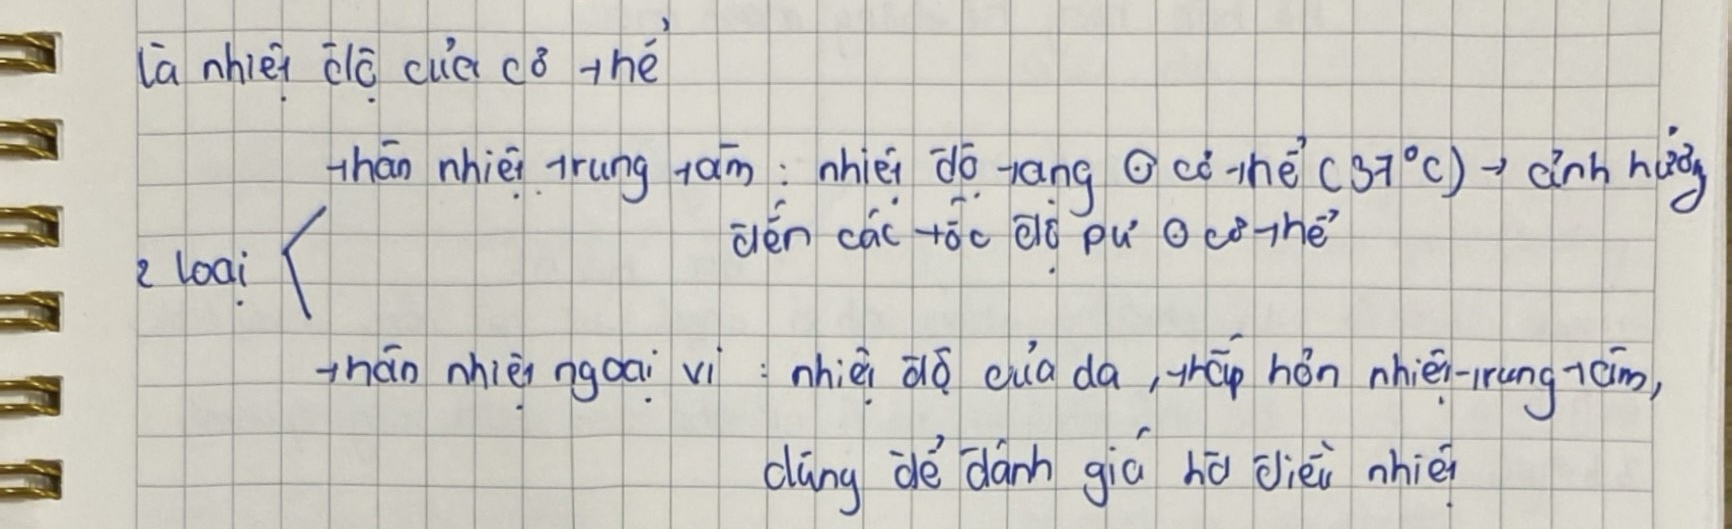 là nhiệt độ của cơ thể
thân nhiệt trung tâm : nhiệt độ tạng ⊙ cơ thể (37°C) → ảnh hưởng
đến các tốc độ pư ⊙ cơ thể
2 loại
thân nhiệt ngoại vi : nhiệt độ của da, thấp hơn nhiệt trung tâm,
dùng để đánh giá hđ điều nhiệt